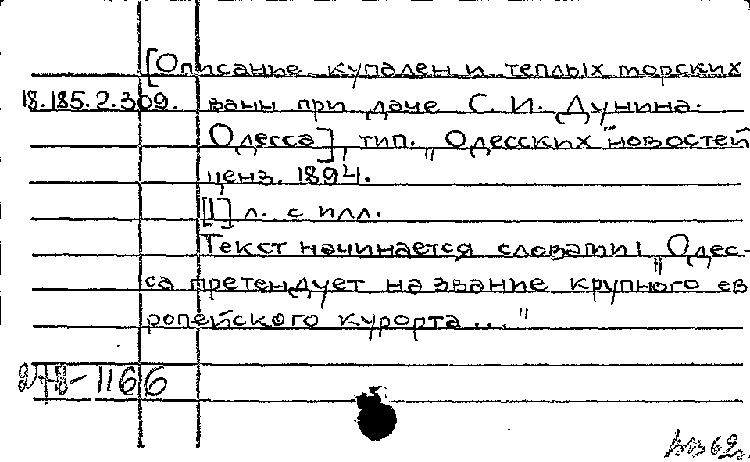 [Описание купален и теплых морских
18.185.2.309. ванн при даче С. И. Дунина.
Одесса], тип. „Одесских новостей"
ценз. 1894.
[1] л. с илл.
Текст начинается словами: „Одес-
са претендует на звание крупного ев
ропейского курорта..."
278-1166